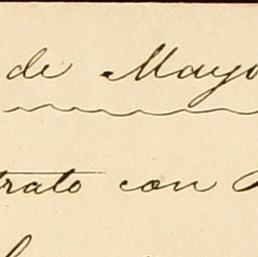 de Mayo
trato con